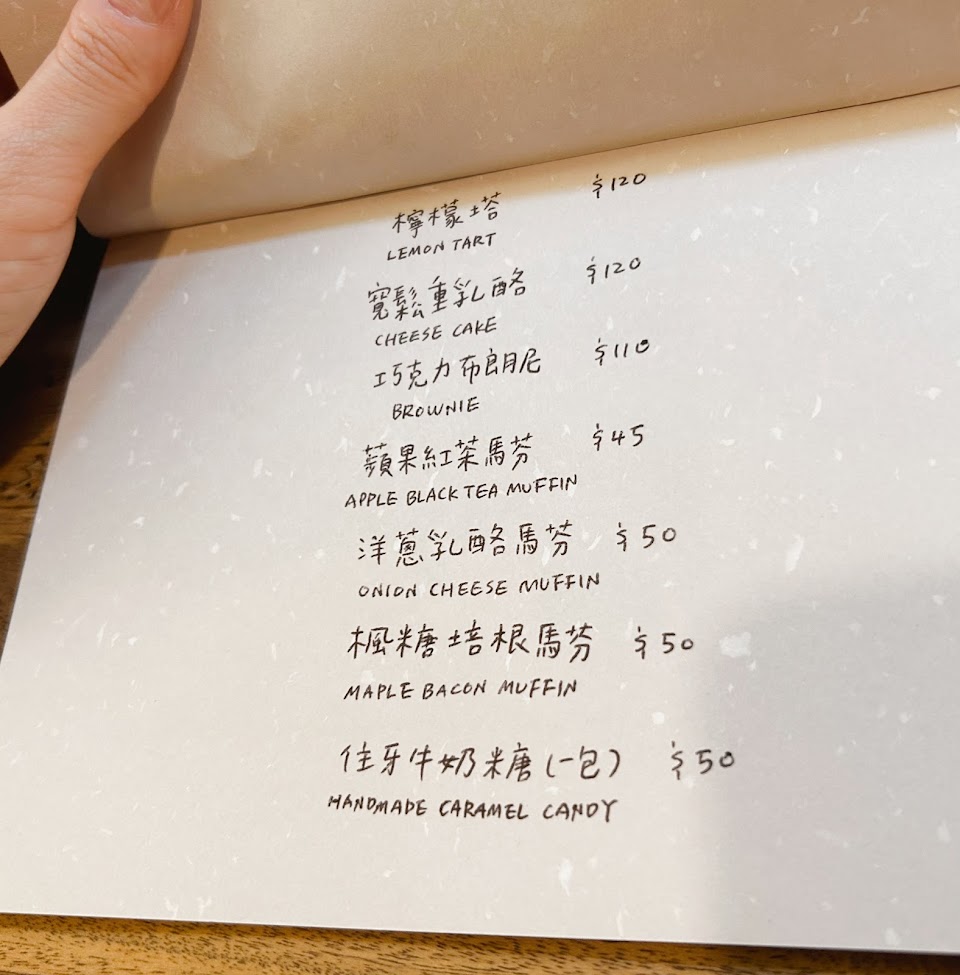 檸檬塔 $120
LEMON TART
寬鬆重乳酪 $120
CHEESE CAKE
巧克力布朗尼 $110
BROWNIE
蘋果紅茶馬芬 $45
APPLE BLACK TEA MUFFIN
洋蔥乳酪馬芬 $50
ONION CHEESE MUFFIN
楓糖培根馬芬 $50
MAPLE BACON MUFFIN
住牙牛奶糖(一包) $50
HANDMADE CARAMEL CANDY